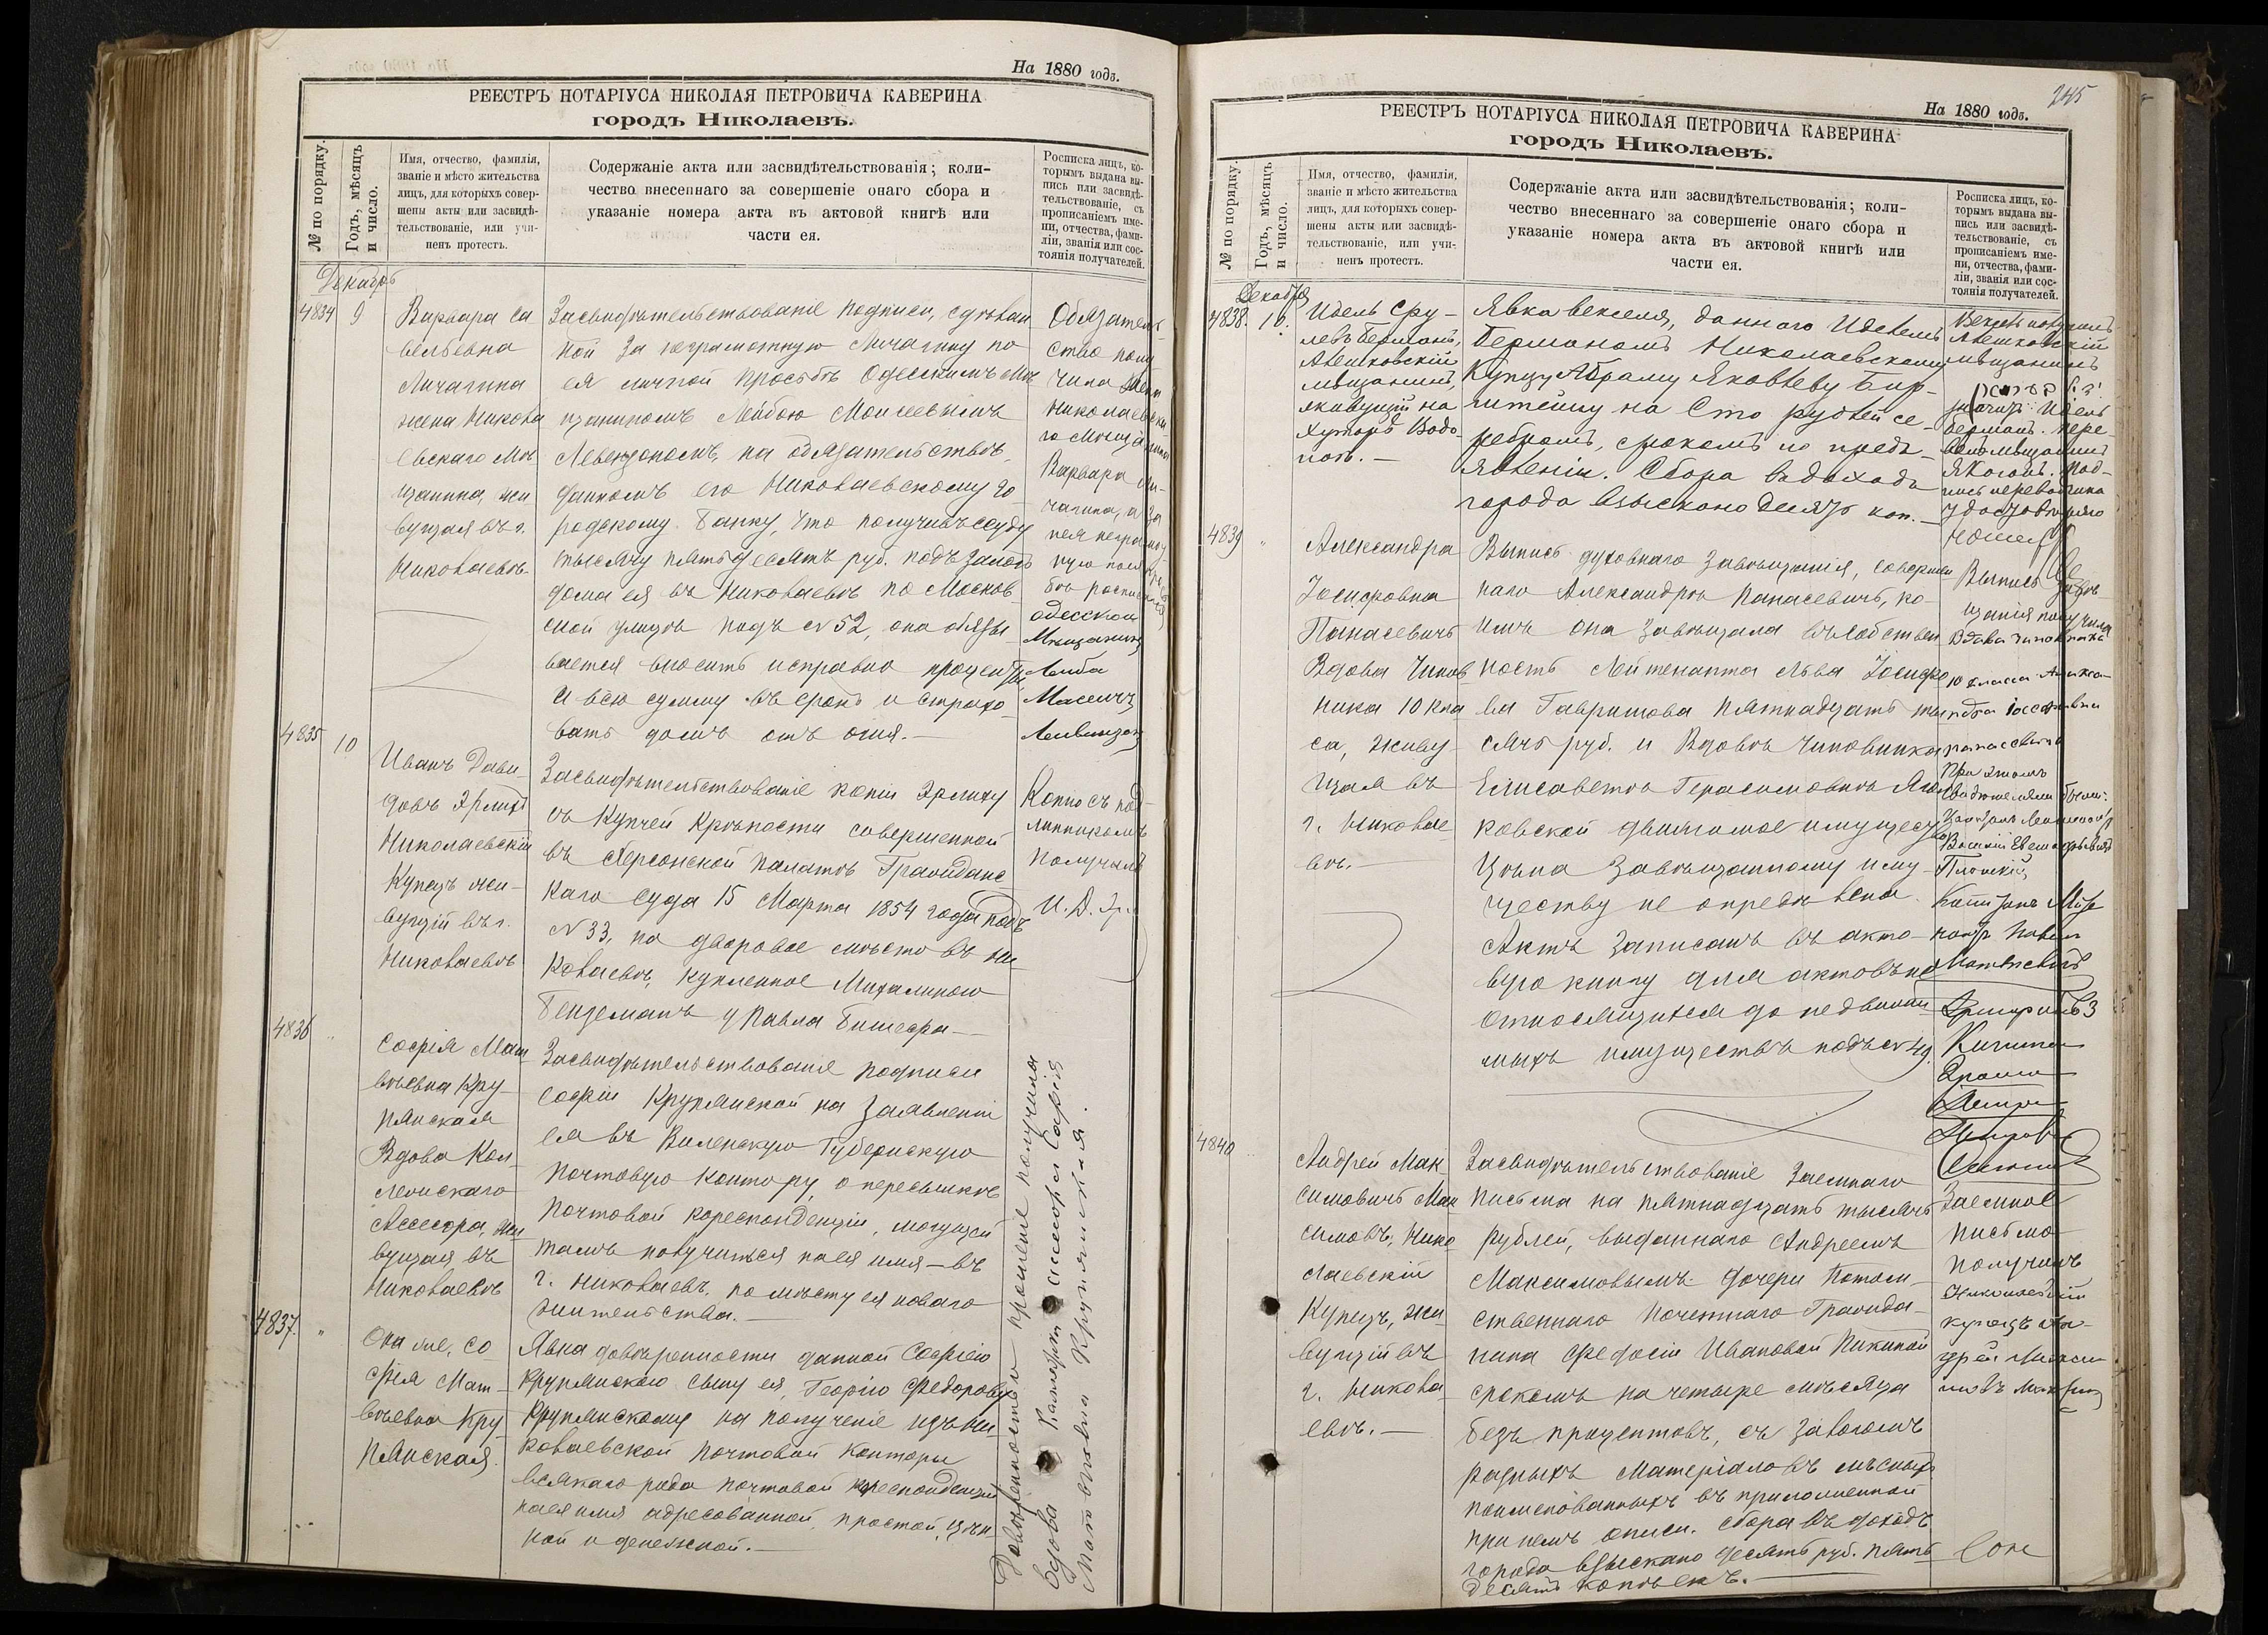 На 1880 годъ.
РЕЕСТРЪ НОТАРІУСА НИКОЛАЯ ПЕТРОВИЧА КАВЕРИНА
городъ Николаевъ.
№ по порядку.
Годъ, мѣсяцъ
и число.
Имя, отчество, фамилія,
званіе и мѣсто жительства
лицъ, для которыхъ совер-
шены акты или засвидѣ-
тельствованіе, или учи-
ненъ протестъ.
Содержаніе акта или засвидѣтельствованія; коли-
чество внесеннаго за совершеніе онаго сбора и
указаніе номера акта въ актовой книгѣ или
части ея.
Росписка лицъ, ко-
торымъ выдана вы-
пись или засвидѣ-
тельствованіе, съ
прописаніемъ име-
ни, отчества, фами-
ліи, званія или сос-
тоянія получателей.
Декабрь
4834
9
Варвара Са
вельевна
Личагина
жена Никола
евскаго Мѣ
щанина, жи
вущая въ г.
Николаевѣ.
Засвидѣтельствованіе подписи, сдѣлан
ной за неграмотную Личагину по
ея личной просьбѣ Одесскимъ Мѣ
щаниномъ Лейбою Моисеевымъ
Левензономъ, на обязательствѣ,
данномъ его Николаевскому Го
родскому Банку, что получивъ ссуду
тысячу пятьдесятъ руб. подъ залогъ
дома ея въ Николаевѣ по Москов
ской улицѣ подъ № 52, она обязы
вается вносить исправно проценты
и всю сумму въ срокъ и страхо
вать домъ отъ огня.—
Обязатель
ство полу
чила
Николаевска
го Мѣщанина
Варвара Ли-
чагина, а за
нея неграмот
ную
одесскій
Мѣщанинъ
Лейба
4835
10
Иванъ Дави-
довъ Эрлихъ
Николаевскій
Купецъ жи-
вущій въ г.
Николаевѣ
Засвидѣтельствованіе копіи Эрлиху
съ Купчей Крѣпости совершенной
въ Херсонской Палатѣ Гражданс
каго Суда 15 Марта 1854 года подъ
№ 33, на дворовое мѣсто въ Ни
колаевѣ, купленное Михалиною
Бенземанъ у Павла
Копію съ под-
линникомъ
получилъ
И. Д. Эр.
4836
"
Софія Мат
вѣевна Кру-
пянская
Вдова Кол-
лежскаго
Ассесора, жи
вущая въ
Николаевѣ
Засвидѣтельствованіе подписи
Софіи Крупянской на заявленіи
ея въ Виленскую Губернскую
Почтовую Контору, о пересылкѣ
Почтовой кореспонденціи, могущей
тамъ получиться на ея имя — въ
г. Николаевъ, по мѣсту ея новаго
жительства.—
4837.
"
Она же, Со
фія Мат-
вѣевна Кру-
пянская.
Явка довѣренности данной Софіею
Крупянскою сыну ея, Георгію Федорову
Крупянскому на полученіе изъ Ни-
колаевской почтовой конторы
всякаго рода почтовой кореспонденціи
на ея имя адресованной, простой, цѣн
ной и денежной.—
Довѣренность и прошеніе получила
вдова Софія
Матвѣевна Крупянская.
245
На 1880 годъ.
РЕЕСТРЪ НОТАРІУСА НИКОЛАЯ ПЕТРОВИЧА КАВЕРИНА
городъ Николаевъ.
№ по порядку.
Годъ, мѣсяцъ
и число.
Имя, отчество, фамилія,
званіе и мѣсто жительства
лицъ, для которыхъ совер-
шены акты или засвидѣ-
тельствованіе, или учи-
ненъ протестъ.
Содержаніе акта или засвидѣтельствованія; коли-
чество внесеннаго за совершеніе онаго сбора и
указаніе номера акта въ актовой книгѣ или
части ея.
Росписка лицъ, ко-
торымъ выдана вы-
пись или засвидѣ-
тельствованіе, съ
прописаніемъ име-
ни, отчества, фами-
ліи, званія или сос-
тоянія получателей.
Декабря
4838.
10.
Идель Сру-
левъ Берманъ,
Алешковскій
мѣщанинъ,
живущій на
Хуторѣ Водо-
поѣ.—
Явка векселя, даннаго Иделемъ
Берманомъ Николаевскому
Купцу Абраму Яковлеву Бир-
штейну на Сто рублей се-
ребромъ, срокомъ по предъ-
явленіи. Сбора въ доходъ
города взыскано десять коп.—
Вексель получилъ
Алешковскій
мѣщанинъ
значитъ: Идель
Берманъ. Пере-
велъ мѣщанинъ
Я Коганъ. Под-
пись переводчика
удостовѣряю
4839
"
Александра
Іосифовна
Панасевичъ
Вдова Чинов
ника 10 кла
са, живу-
щая въ
г. Николае
вѣ.—
Выпись духовнаго завѣщанія, совершен
наго Александрою Панасевичъ, ко-
имъ она завѣщала въ собствен
ность Лейтенанта Льва Іосифо
ва Гаврилова пятнадцать ты
сячъ руб. и Вдовѣ Чиновника
Елисаветѣ Герасимовнѣ
ковской движимое имущество
Цѣна завѣщанному иму-
ществу не опредѣлена.
Актъ записанъ въ акто-
вую книгу для актовъ не
относящихся до недвижи
мыхъ имуществъ подъ № 49.
Выпись завѣ
щанія получила
Вдова чиновника
10 класса Алекса
ндра Іосифовна
Панасевичъ
При этомъ
свидѣтелями были:
Капитанъ
Павелъ
4840
"
Андрей Мак-
симовичъ Мак
симовъ, Нико
лаевскій
Купецъ, жи-
вущій въ
г. Никола
евѣ.—
Засвидѣтельствованіе Заемнаго
письма на пятнадцать тысячъ
рублей, выданнаго Андреемъ
Максимовымъ дочери Потом-
ственнаго Почетнаго Гражда-
нина Федосіи Ивановой Никиной
срокомъ на четыре мѣсяца
безъ процентовъ, съ залогомъ
разныхъ матеріаловъ лѣсныхъ
поименованныхъ въ приложенной
при немъ описи. Сбора въ доходъ
города взыскано десять руб. пять
десятъ копѣекъ.—
Заемное
письмо
получилъ
Николаевскій
купецъ Ан-
дрей Макси
мовъ